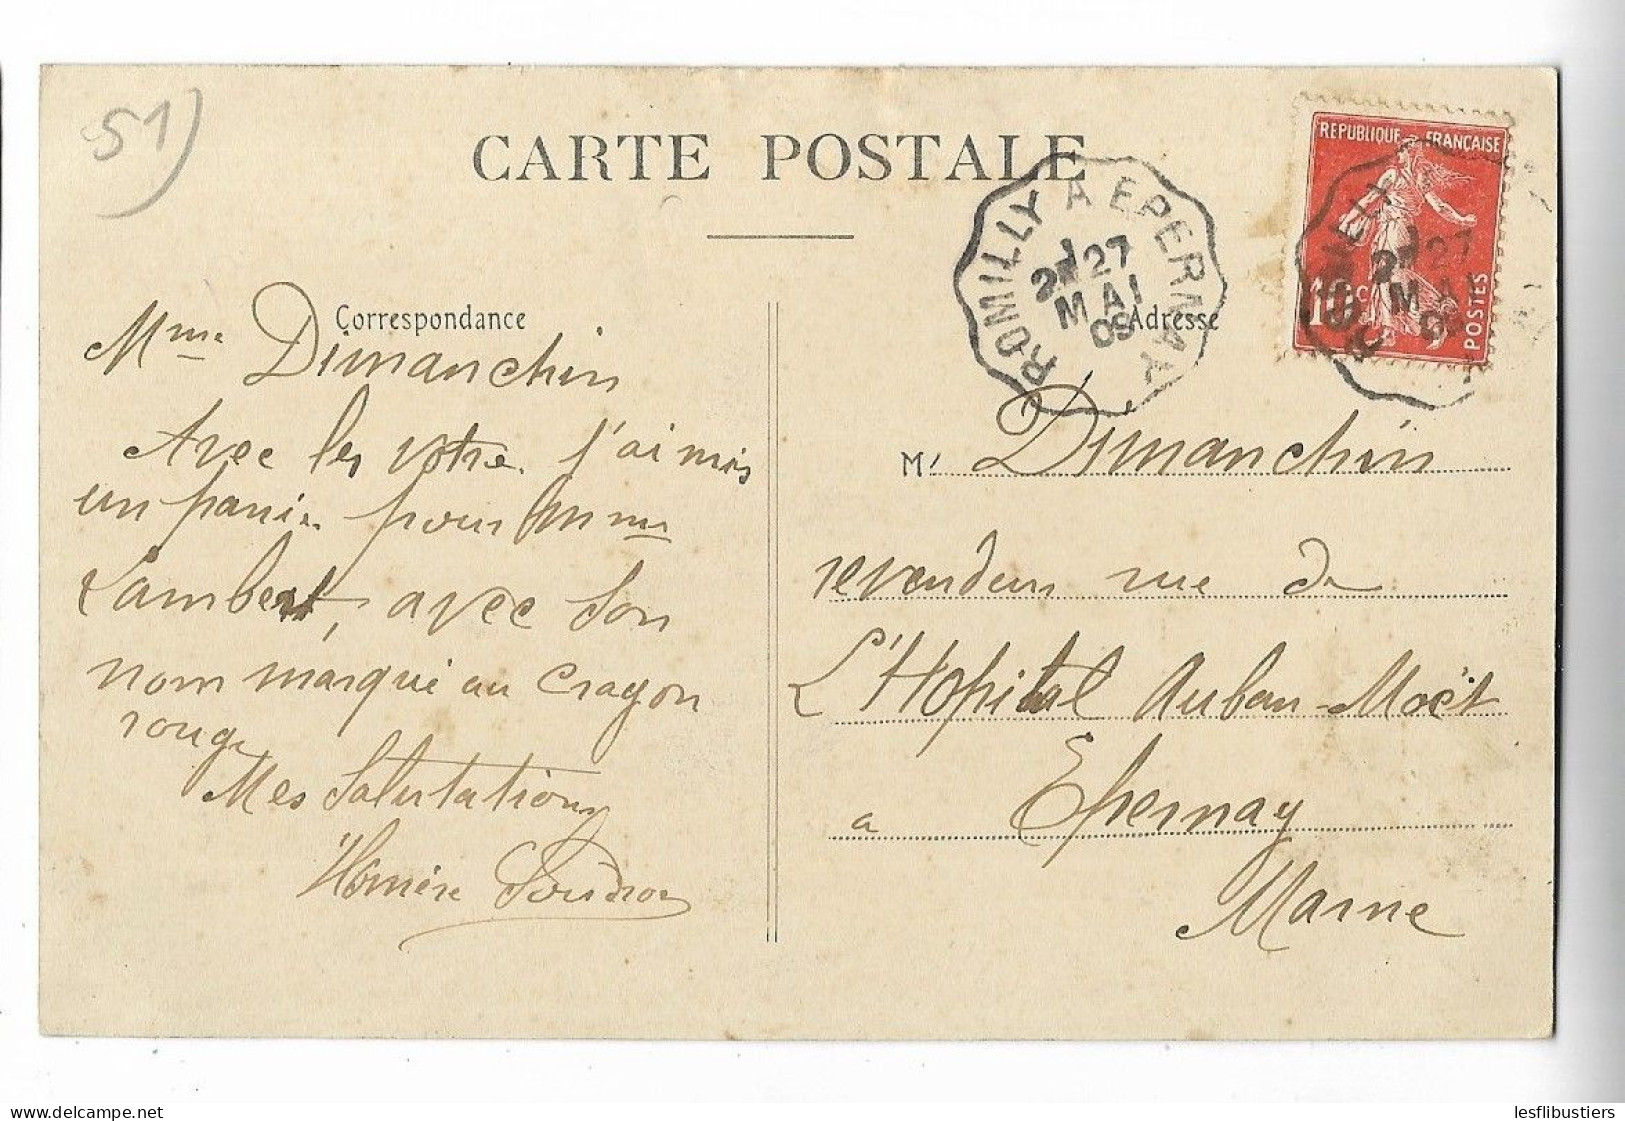 51)
CARTE POSTALE
ROMILLY A EPERNAY
27
MAI
09
REPUBLIQUE FRANÇAISE
POSTES
27
MAI
Correspondance
Adresse
Mme Dimanchin
Avec les votre j'ai mis
un panier pour Mme
Lambert, avec son
nom marqué au crayon
rouge
Mes Salutations
Homère
Mr Dimanchin
revendeur rue de
L'Hopital Auban-Moët
a Epernay
Marne
lesflibustiers